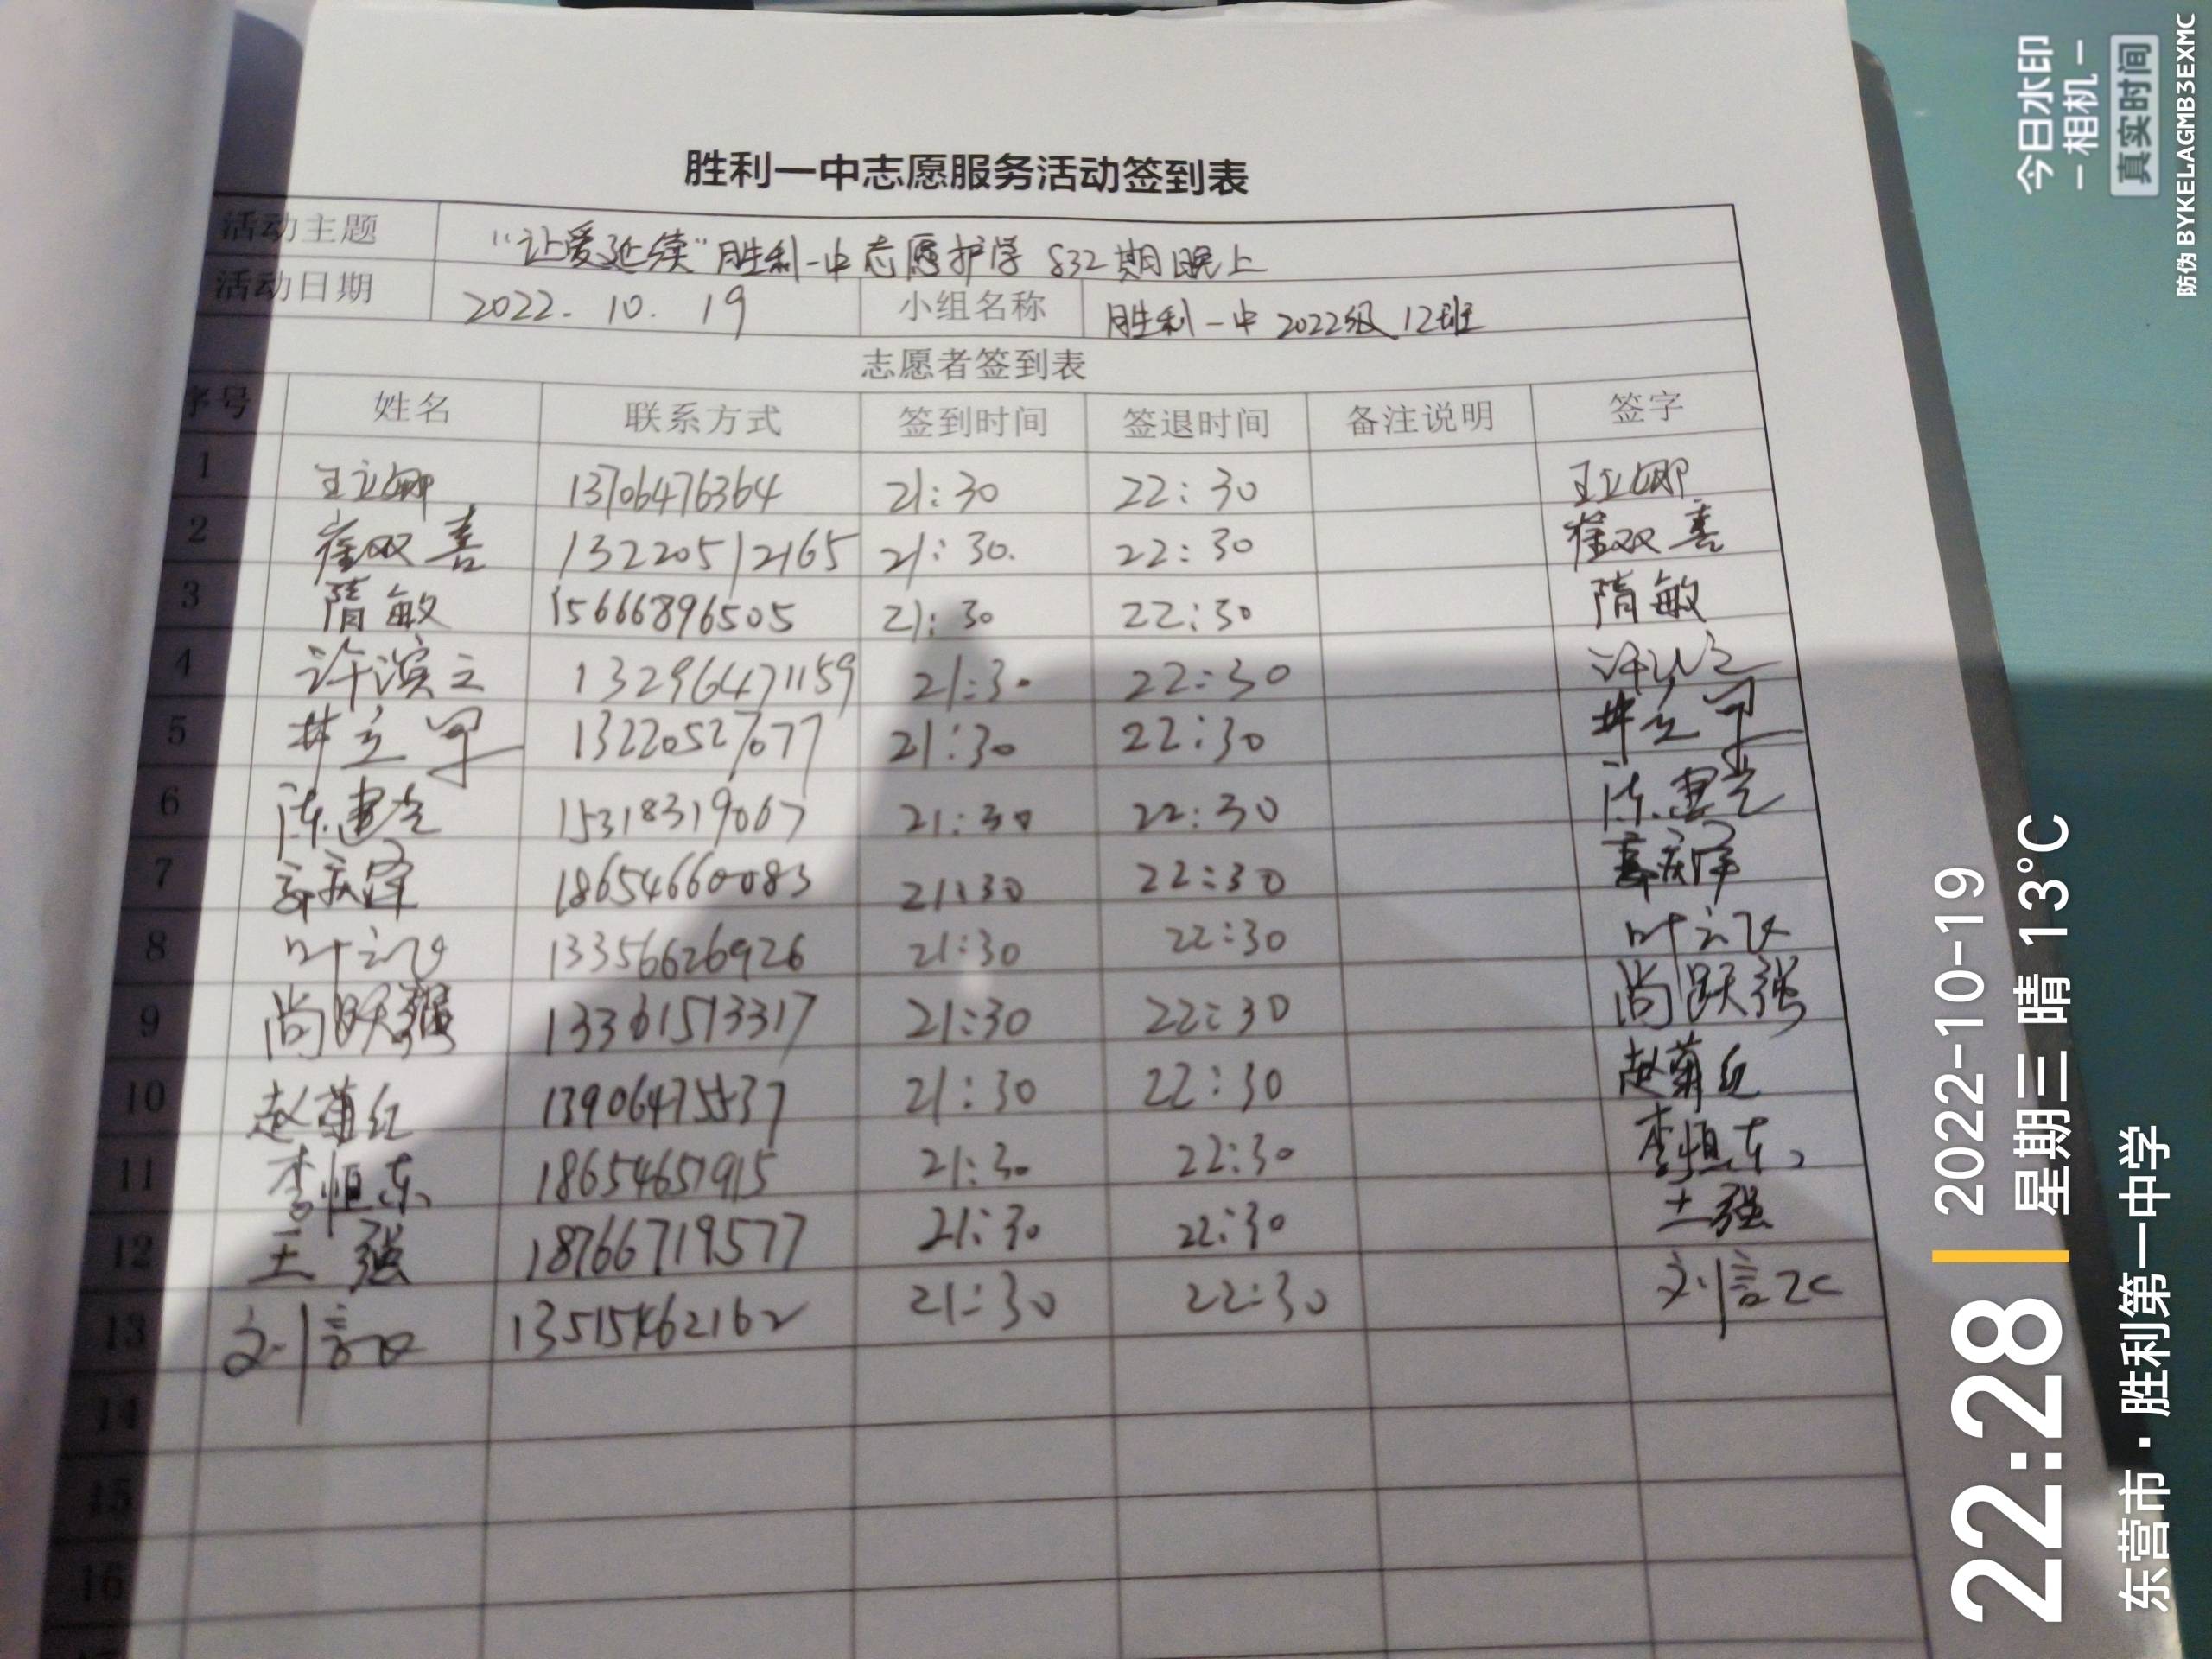 胜利一中志愿服务活动签到表
活动主题 "让爱延续"胜利一中志愿护学 832期晚上
活动日期 2022. 10. 19 小组名称 胜利一中 2022级 12班
志愿者签到表
序号 姓名 联系方式 签到时间 签退时间 备注说明 签字
1 王立娜 13706476364 21:30 22:30 王立娜
2 崔双喜 13220512165 21:30. 22:30 崔双喜
3 隋敏 15666896505 21:30 22:30 隋敏
4 许滨立 13296471159 21:30 22:30
5 井立军 13220527077 21:30 22:30 井立军
6 陈建光 15318319067 21:30 22:30 陈建光
7 18654660083 21:30 22:30
8 叶云飞 13356626926 21:30 22:30 叶云飞
9 尚跃强 13361513317 21:30 22:30 尚跃强
10 赵菊红 13906475537 21:30 22:30 赵菊红
11 李恒东 18654651915 21:30 22:30 李恒东
12 王强 18766719577 21:30 22:30 王强
13 刘信 13515462162 21:30 22:30 刘信
14
15
16
今日水印
-相机-
真实时间
防伪 BYKELAGMB3EXMC
22:28
2022-10-19
星期三 晴 13°C
东营市·胜利第一中学